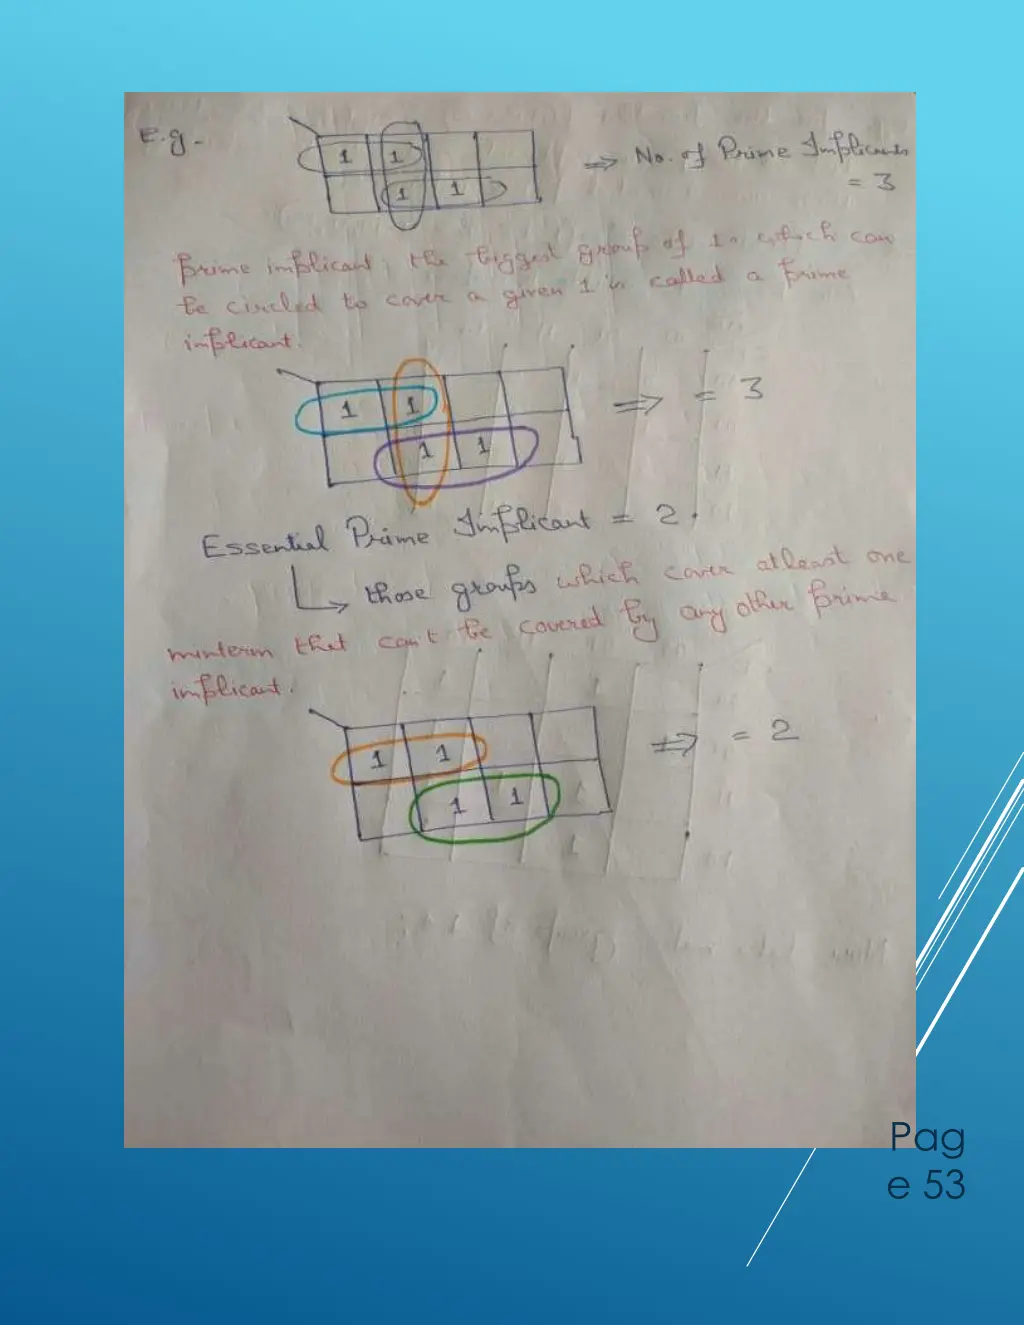 e.g-
1 1
1 1
⇒ No. of Prime Implicants
= 3
Prime implicant, the biggest group of 1s which can
be circled to cover a given 1 is called a prime
implicant.
1 1
1 1
⇒ = 3
Essential Prime Implicant = 2.
↳ those groups which cover atleast one
minterm that can't be covered by any other prime
implicant.
1 1
1 1
⇒ = 2
Pag
e 53